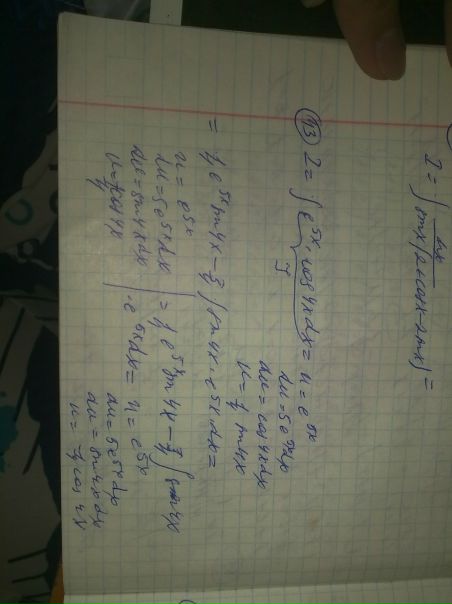 I = ∫ dx / sinx(2+cosx-2sinx) =
43) I = ∫ e^5x · cos4x dx = u = e^5x
J
du = 5e^5x dx
dv = cos4x dx
v = 1/4 sin4x
= 1/4 e^5x sin4x - 5/4 ∫ sin4x · e^5x dx =
u = e^5x
du = 5e^5x dx
dv = sin4x dx
= 1/4 e^5x sin4x - 5/4 ∫ sin4x
· e^5x dx = u = e^5x
du = 5e^5x dx
dv = sin4x dx